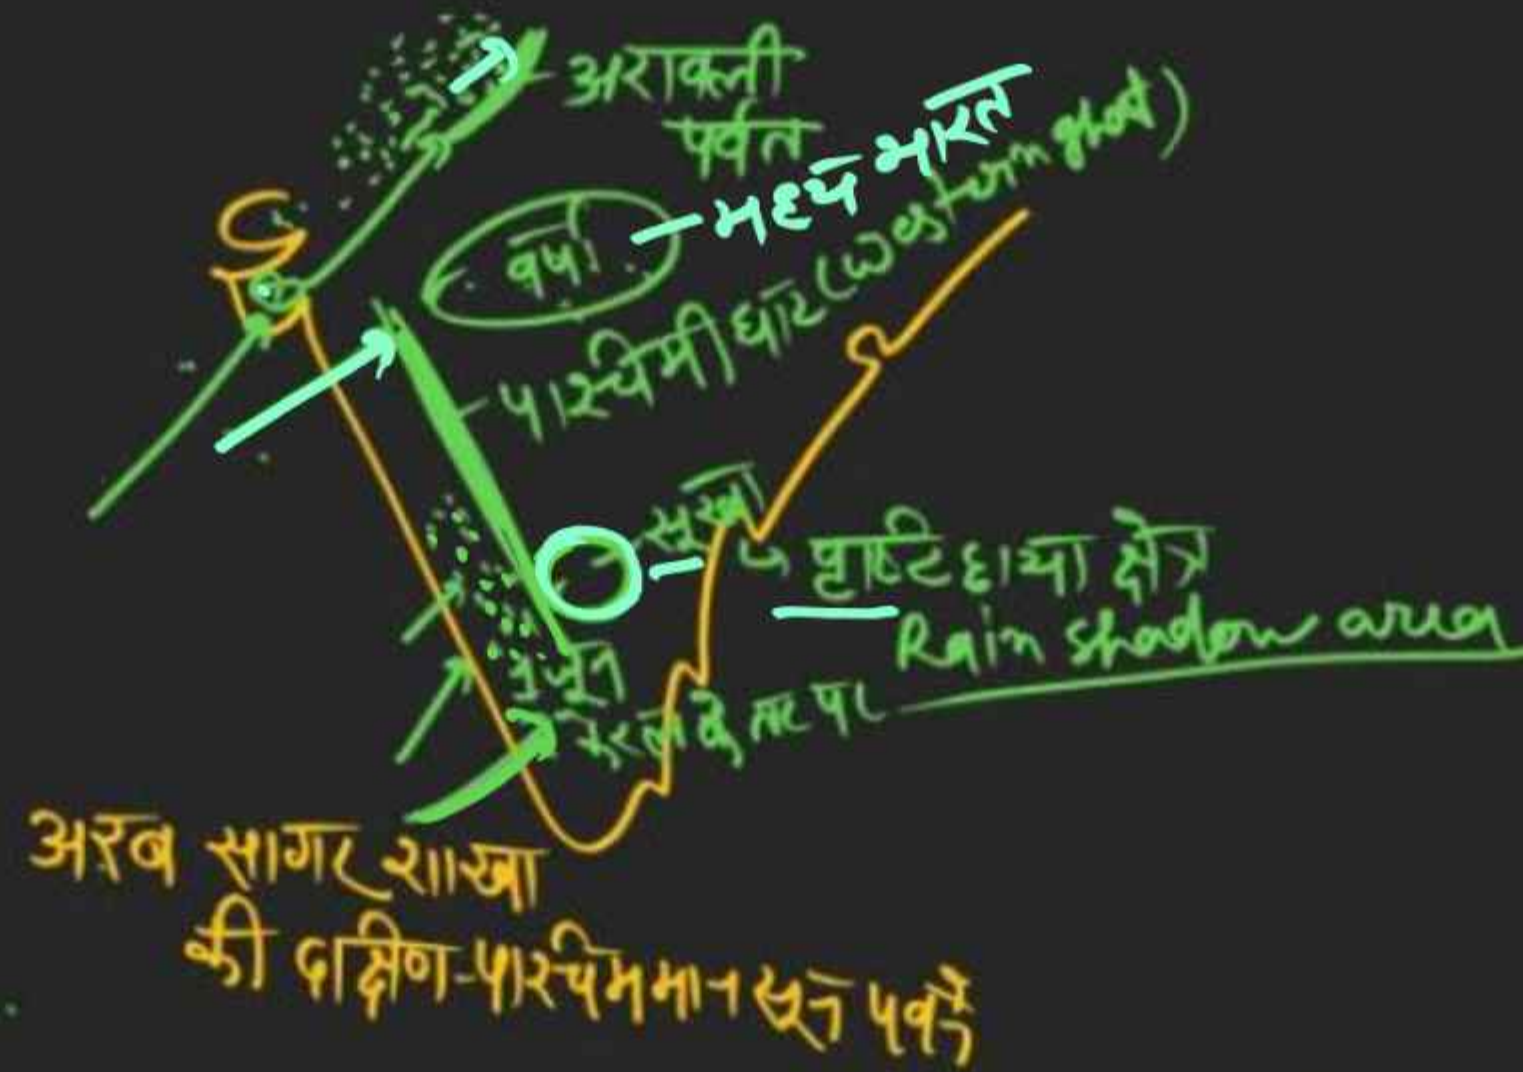 अरावली
पर्वत
वर्षा - मध्य भारत
पश्चिमी घाट (Western ghat)
सूखा
↳ वृष्टि छाया क्षेत्र
Rain shadow area
1 जून
केरल के तट पर
अरब सागर शाखा
की दक्षिण-पश्चिम मानसून पवनें